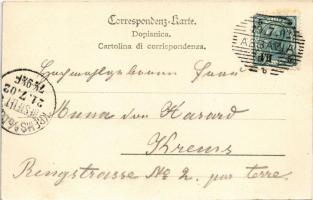 Correspondenz-Karte.
Dopisnica.
Cartolina di corrispondenza.
ABBAZIA
Hochwohlgeboren Frau
Anna von Kasard
Krems
Ringstrasse No 2. par terre.